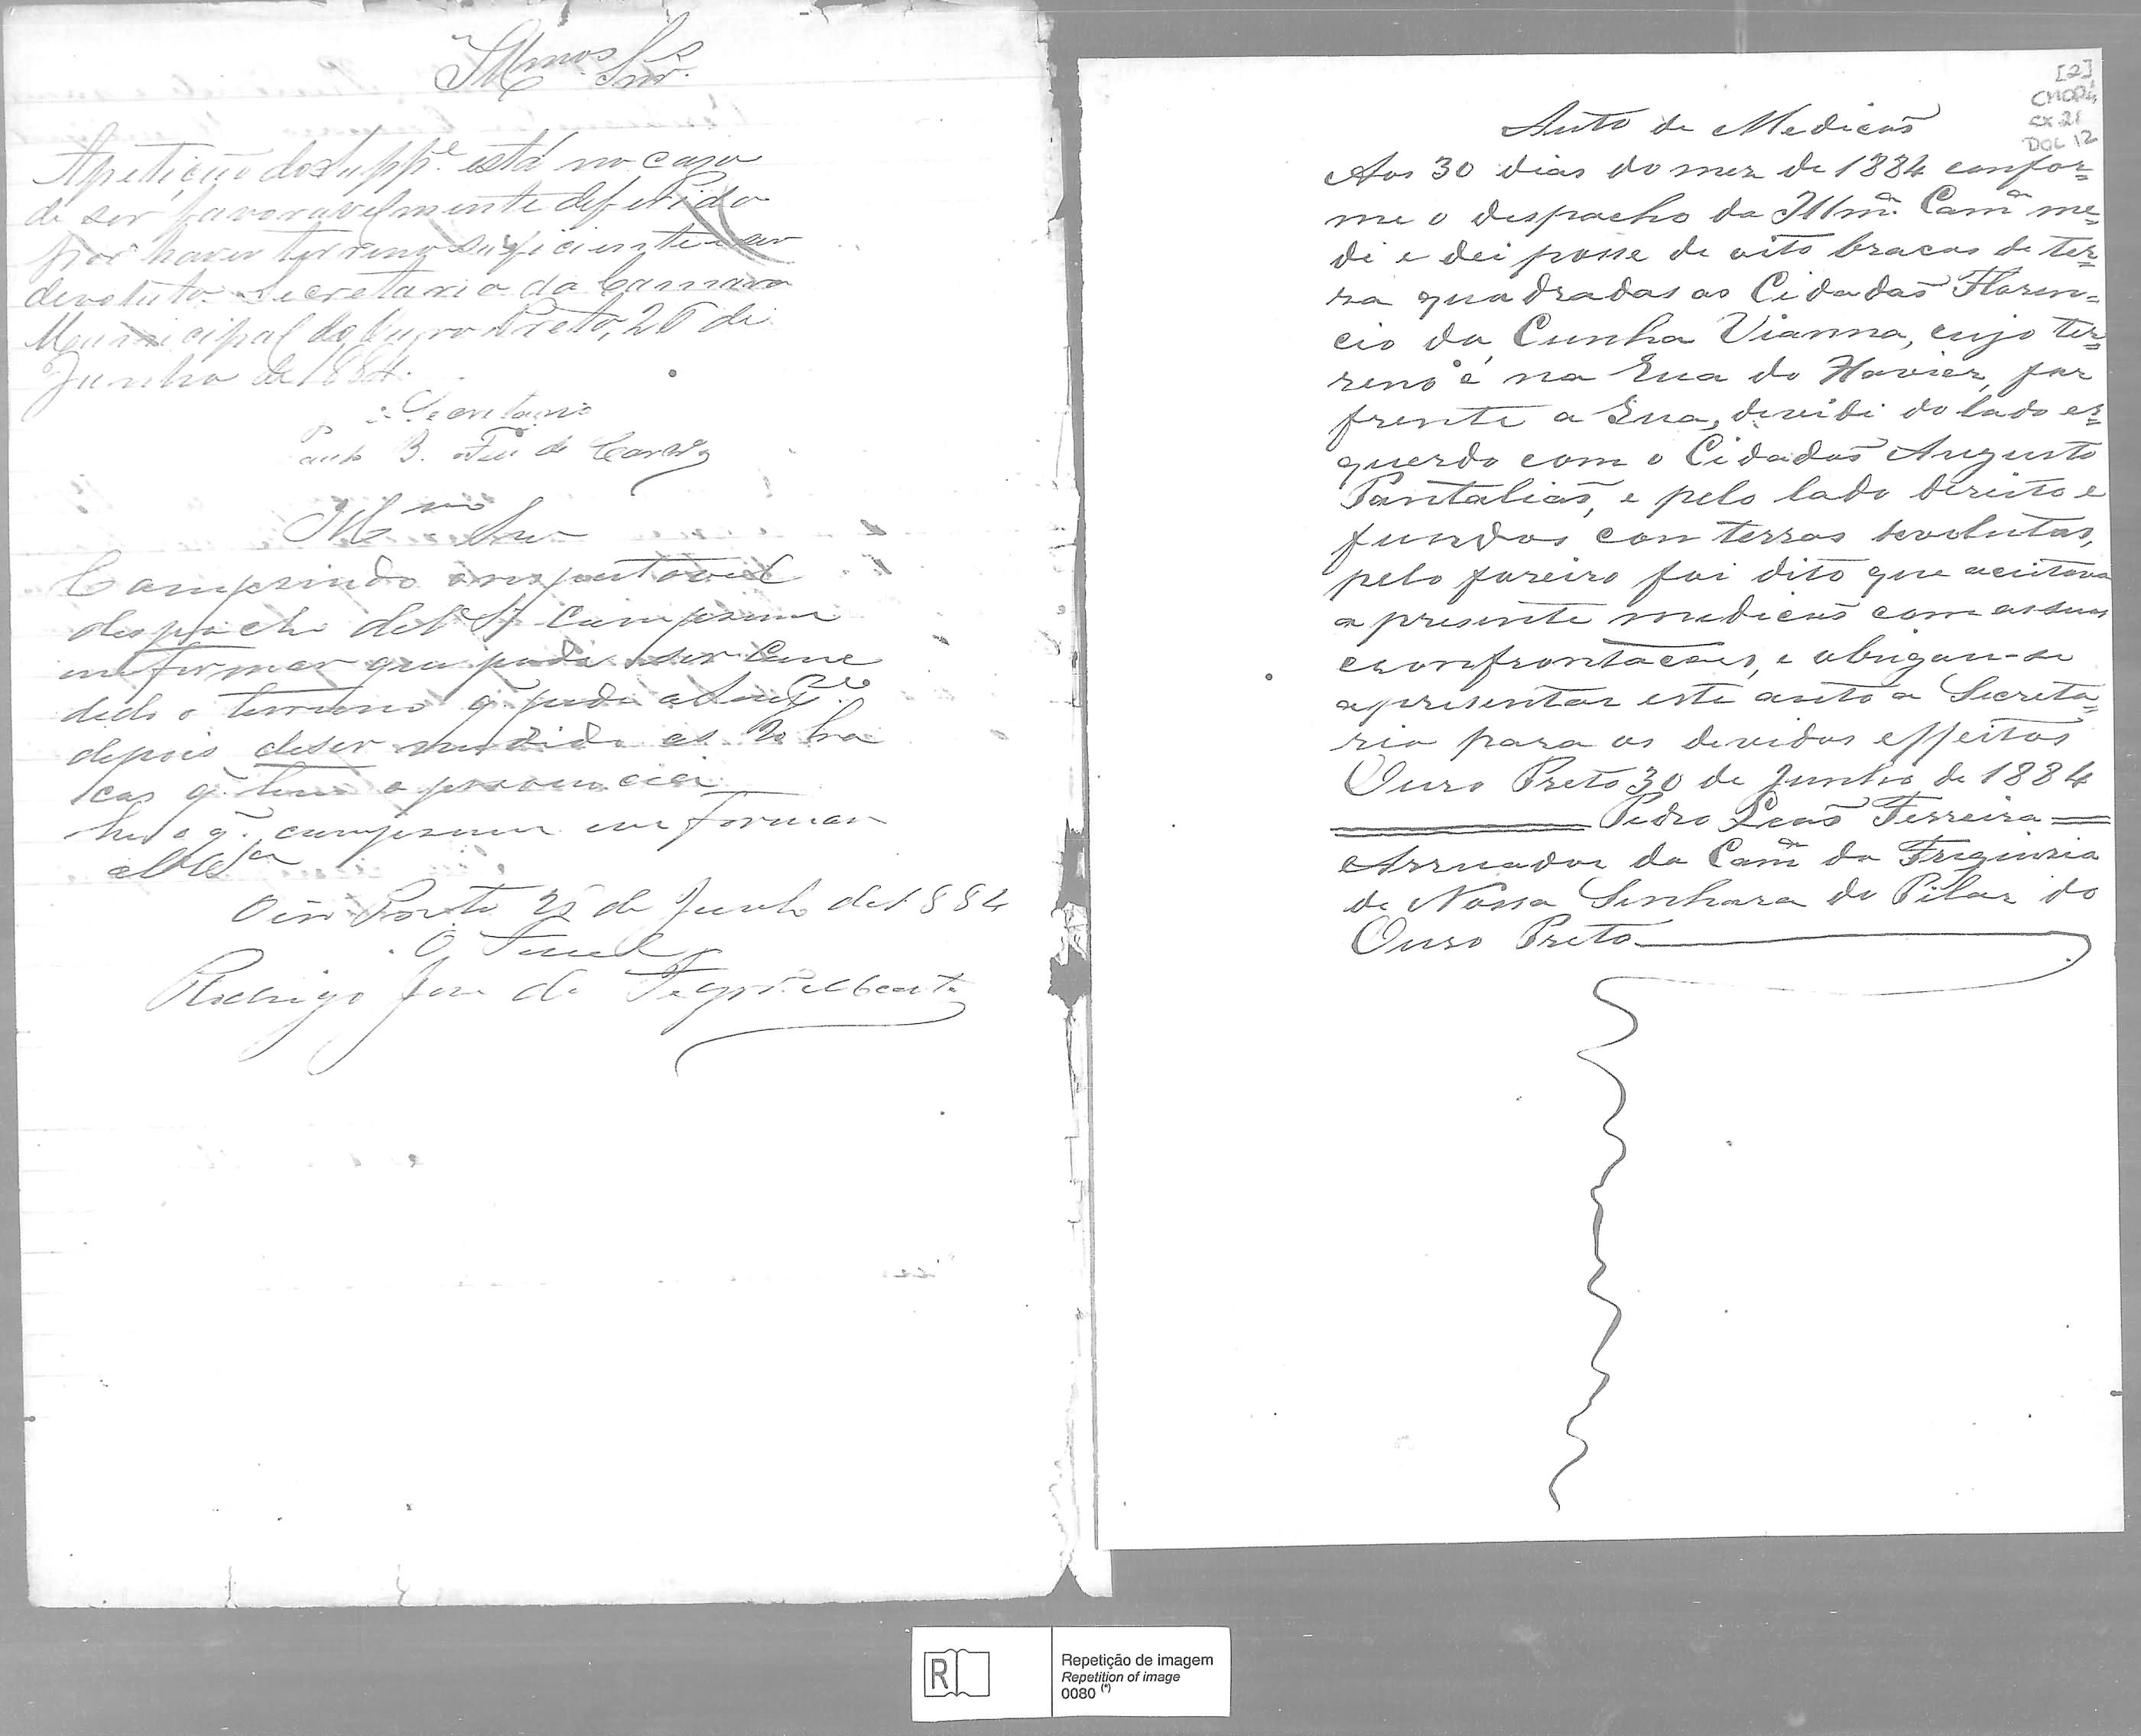 Illmos. Snrs.
A petição do Suppe. está no caso
de ser favoravelmente deferida
por haver terreno suficiente e ser
devoluto. Secretaria da Camara
Municipal do Ouro Preto, 26 de
Junho de 1884.
Secretario
B. de
Illmo Snr
Comprindo o respeitavel
despacho de V. Sa. cumpreme
informar que pode ser conce
dido o terreno q̃ pede o Supe.
depois de ser medido as 20 bra
cas q̃ tem a
he o q̃. cumpreme informar
a V. Sa
Ouro Preto 25 de Junho de 1884
O Fiscal
Rodrigo José de
[2]
CMOP
cx 21
DOC 12
Auto de Medicaõ
Aos 30 dias do mez de 1884 confor=
me o despacho da Illmª. Camª me=
di e dei posse de oito bracas de ter=
ra quadradas ao Cidadaõ Floren=
cio da Cunha Vianna, cujo ter=
reno é na Rua do Xavier, por
frente a Rua, devidi do lado es=
querdo com o Cidadaõ Augusto
Pantaliaõ, e pelo lado direito e
fundos con terras devolutas,
pelo foreiro foi dito que aceitava
a presente medicaõ com as suas
confrontacões, e obrigou-se
apresentar este auto a Secreta=
ria para os devidos effeitos
Ouro Preto 30 de Junho de 1884
Pedro Leaõ Ferreira
Arruador da Camª da Freguizia
de Nossa Senhora do Pilar do
Ouro Preto
R
Repetição de imagem
Repetition of image
0080 (*)